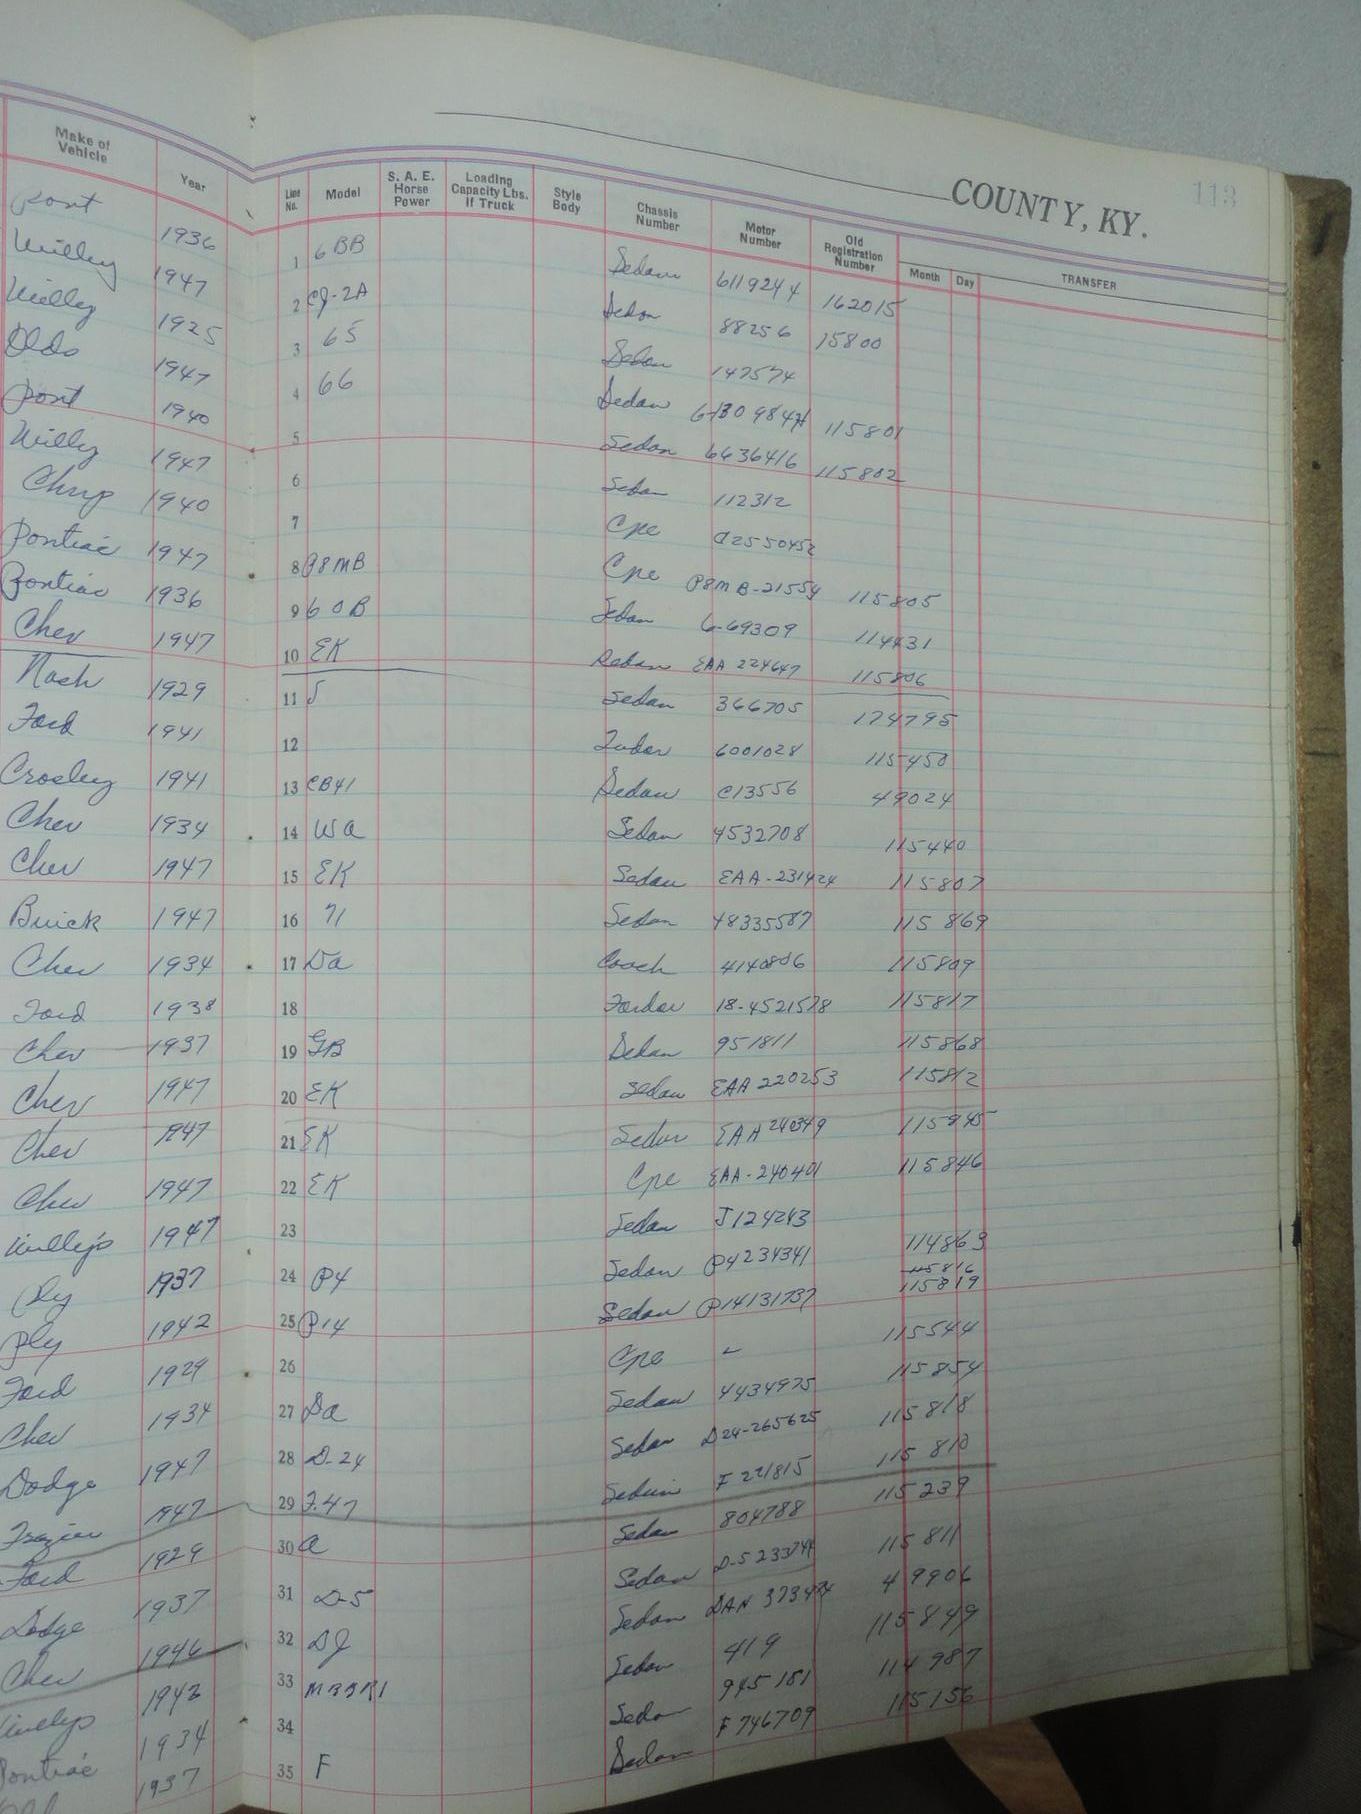 COUNTY, KY. 113
Make of Vehicle Year Line No. Model S. A. E. Horse Power Loading Capacity Lbs. If Truck Style Body Chassis Number Motor Number Old Registration Number Month Day TRANSFER
Pont 1936 1 6 BB Sedan 6119244 162015
Willey 1947 2 CJ-2A Sedan 88256 15800
Willey 1925 3 65 Sedan 147574
Olds 1947 4 66 Sedan 6-130 9847H 115801
Pont 1940 5 Sedan 6636416 115802
Willy 1947 6 Sedan 112312
Chryp 1940 7 Cpe C2550452
Pontiac 1947 8 P8MB Cpe P8MB-21554 115805
Pontiac 1936 9 6 0B Sedan 6-69309 114431
Chev 1947 10 EK Sedan EAA 224647 115806
Nash 1929 11 Sedan 366705 174795
Ford 1941 12 Tudor 6001028 115450
Crosley 1941 13 CB41 Sedan C13556 49024
Chev 1934 14 Wa Sedan 4532708 115440
Chev 1947 15 EK Sedan EAA-231424 115807
Buick 1947 16 71 Sedan 48335587 115 869
Chev 1934 17 Da Coach 4140806 115809
Ford 1938 18 Fordor 18-4521578 115817
Chev 1937 19 GB Sedan 951811 115868
Chev 1947 20 EK Sedan EAA 220253 115812
Chev 1947 21 EK Sedan EAA 240349 115945
Chev 1947 22 EK Cpe EAA-240401 115846
Willeys 1947 23 Sedan J124243
Ply 1937 24 P4 Sedan P4234341 114863
115816
Ply 1942 25 P14 Sedan P14131737 115819
Ford 1929 26 Cpe - 115544
Chev 1934 27 Da Sedan 4434975 115854
Dodge 1947 28 D-24 Sedan D24-265625 115818
Frazier 1947 29 F.47 Sedan F 221815 115 810
Ford 1929 30 a Sedan 804788 115 239
Dodge 1937 31 D-5 Sedan D-5 233744 115 811
Chev 1946 32 DJ Sedan DAN 373424 4 9906
Willys 1942 33 Sedan 419 115849
Pontiac 1934 34 Sedan 945 181 114 987
1937 35 F Sedan F 746709 115156